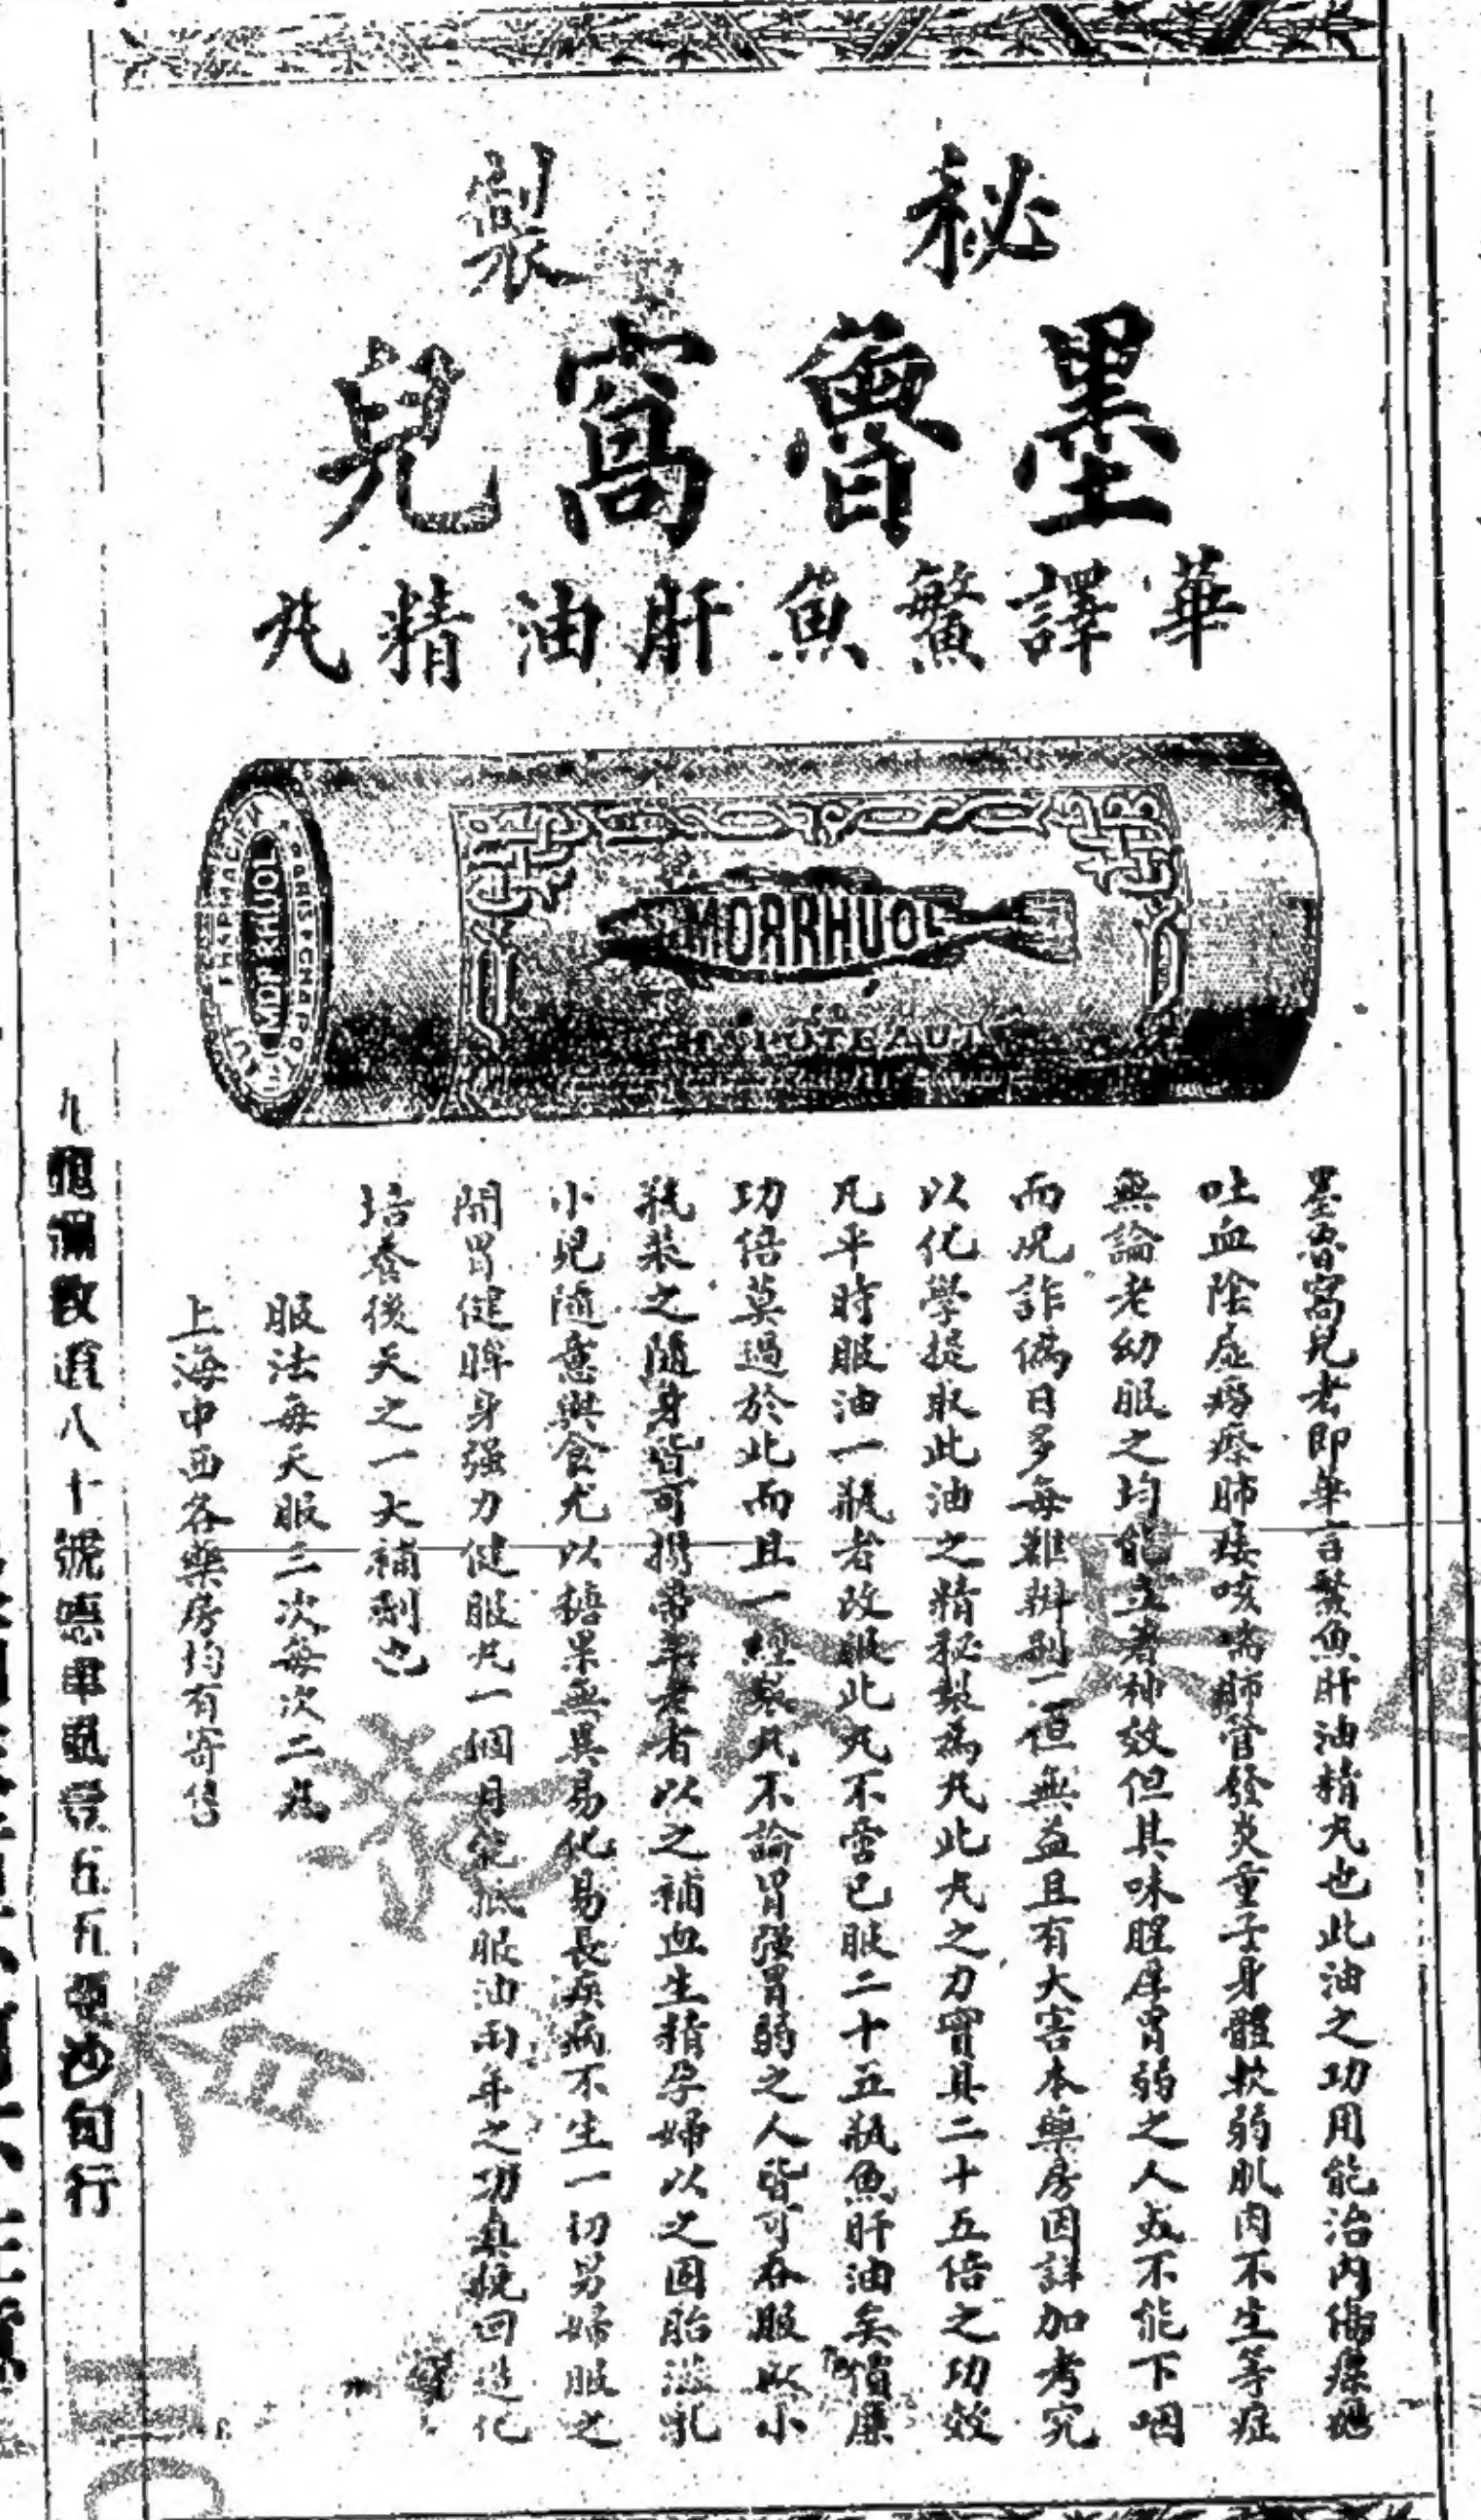 秘製
墨魯窩兒
華譯鱉魚肝油精丸
MORRHUOL
MORRHUOL
墨魯窩兒者即華言鱉魚肝油精丸也此油之功用能治內傷痰
吐血陰虛癆瘵肺痿咳嗽肺管發炎童子身體軟弱肌肉不生等症
無論老幼服之均能立著神效但其味腥厚胃弱之人或不能下咽
而况詐偽日多每難辨別不但無益且有大害本藥房因詳加考究
以化學提取此油之精秘製為丸此丸之力實具二十五倍之功效
凡平時服油一瓶者改服此丸不啻已服二十五瓶魚肝油矣價廉
功倍莫過於此而且一經製丸不論胃强胃弱之人皆可吞服以小
瓶裝之隨身皆可攜帶年老者以之補血生精孕婦以之固胎滋乳
小兒隨意與食尤以糖果無異易化易長疾病不生一切男婦服之
開胃健脾身强力健服丸一個月能抵服油兩年之功真挽回造化
培養後天之一大補劑也
服法每天服三次每次二丸
上海中西各藥房均有寄售
八十號德律風第五五號沙旬行